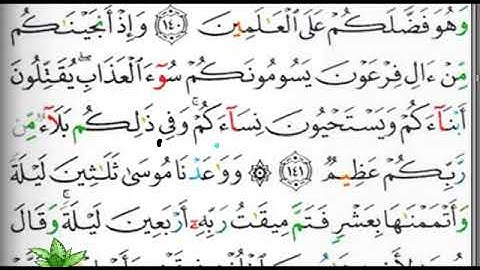 وَهُوَ فَضَّلَكُمْ عَلَى ٱلْعَٰلَمِينَ ١٤٠ وَإِذْ أَنجَيْنَٰكُم
مِّنْ ءَالِ فِرْعَوْنَ يَسُومُونَكُمْ سُوٓءَ ٱلْعَذَابِ ۖ يُقَتِّلُونَ
أَبْنَآءَكُمْ وَيَسْتَحْيُونَ نِسَآءَكُمْ ۚ وَفِى ذَٰلِكُم بَلَآءٌ مِّن
رَّبِّكُمْ عَظِيمٌ ١٤١ ۞ وَوَٰعَدْنَا مُوسَىٰ ثَلَٰثِينَ لَيْلَةً
وَأَتْمَمْنَٰهَا بِعَشْرٍ فَتَمَّ مِيقَٰتُ رَبِّهِۦٓ أَرْبَعِينَ لَيْلَةً ۚ وَقَالَ